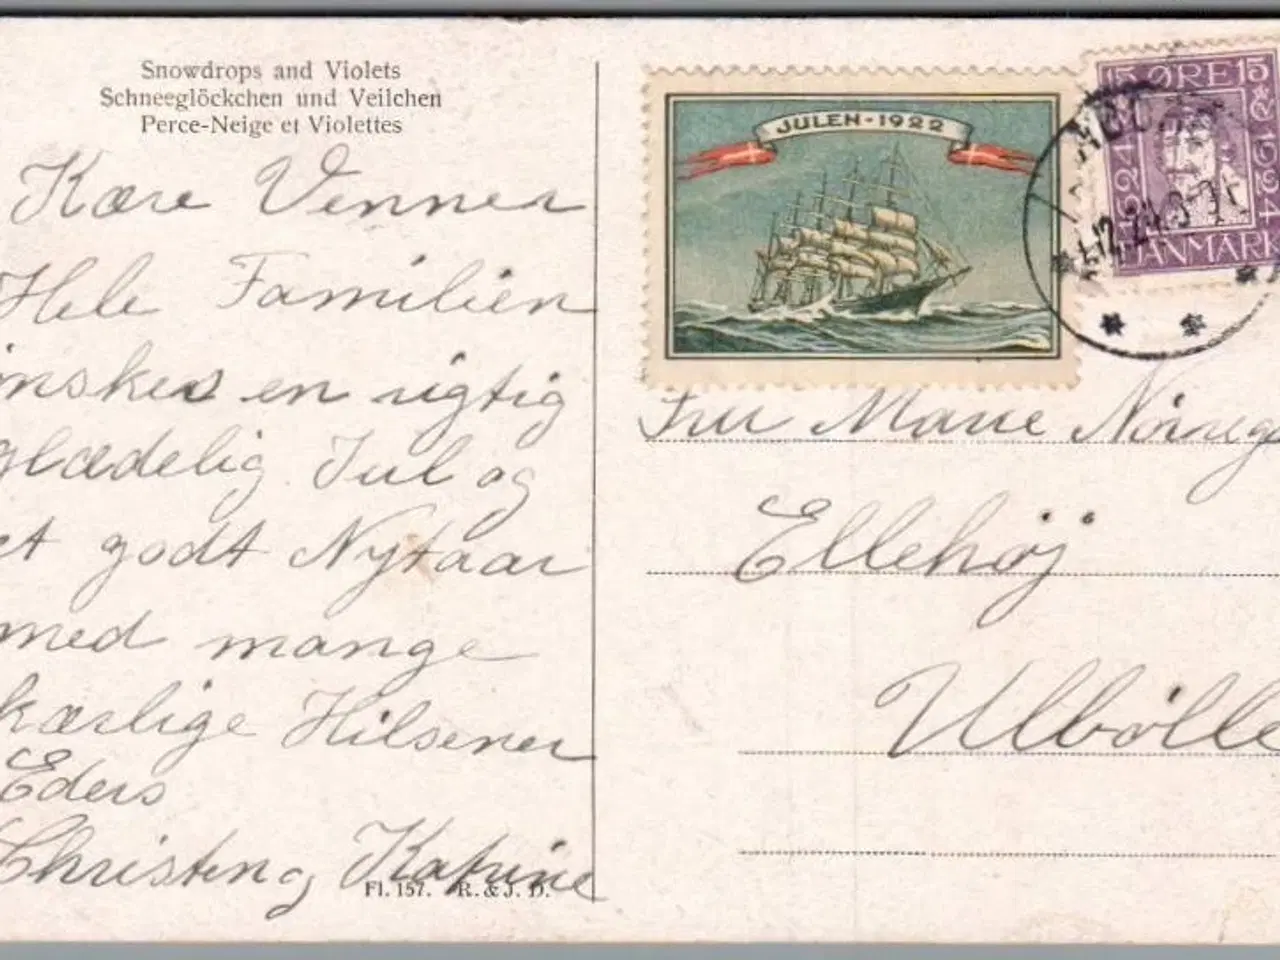 Snowdrops and Violets
Schneeglöckchen und Veilchen
Perce-Neige et Violettes
Kære Venner
Hele Familien
ønskes en rigtig
glædelig Jul og
et godt Nytaar
med mange
kærlige Hilsener
Eders
Christen og Katrine
Fl. 157. R. & J. D.
JULEN - 1922
15 ØRE 15
1624
1924
DANMARK
12.24
Fru Marie Nörreg
Ellehøj
Ulbølle